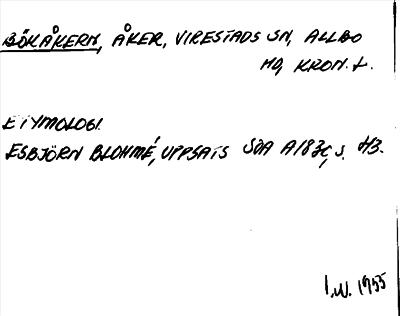 BÖKÅKERN, ÅKER, VIRESTADS SN, ALLBO
HD, KRON. L.
ETYMOLOGI.
ESBJÖRN BLOHMÉ, UPPSATS SOA A183c, s. 43.
I.W. 1955